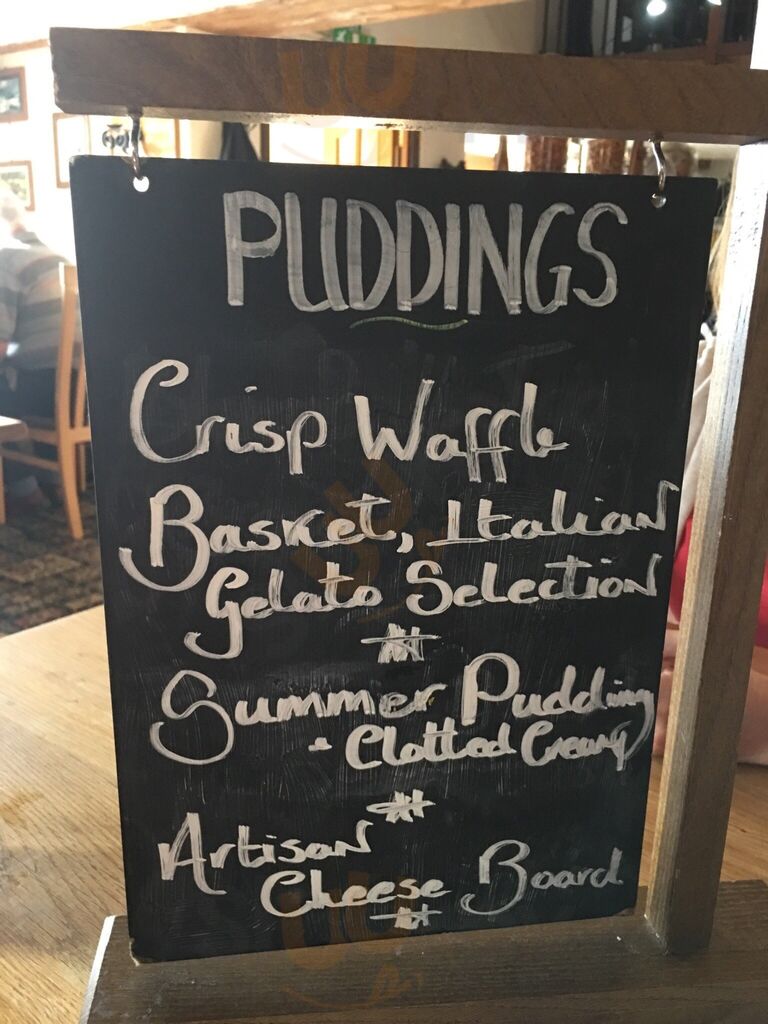 PUDDINGS
Crisp Waffle
Basket, Italian
Gelato Selection
Summer Pudding
- Clotted Cream
Artisan
Cheese Board